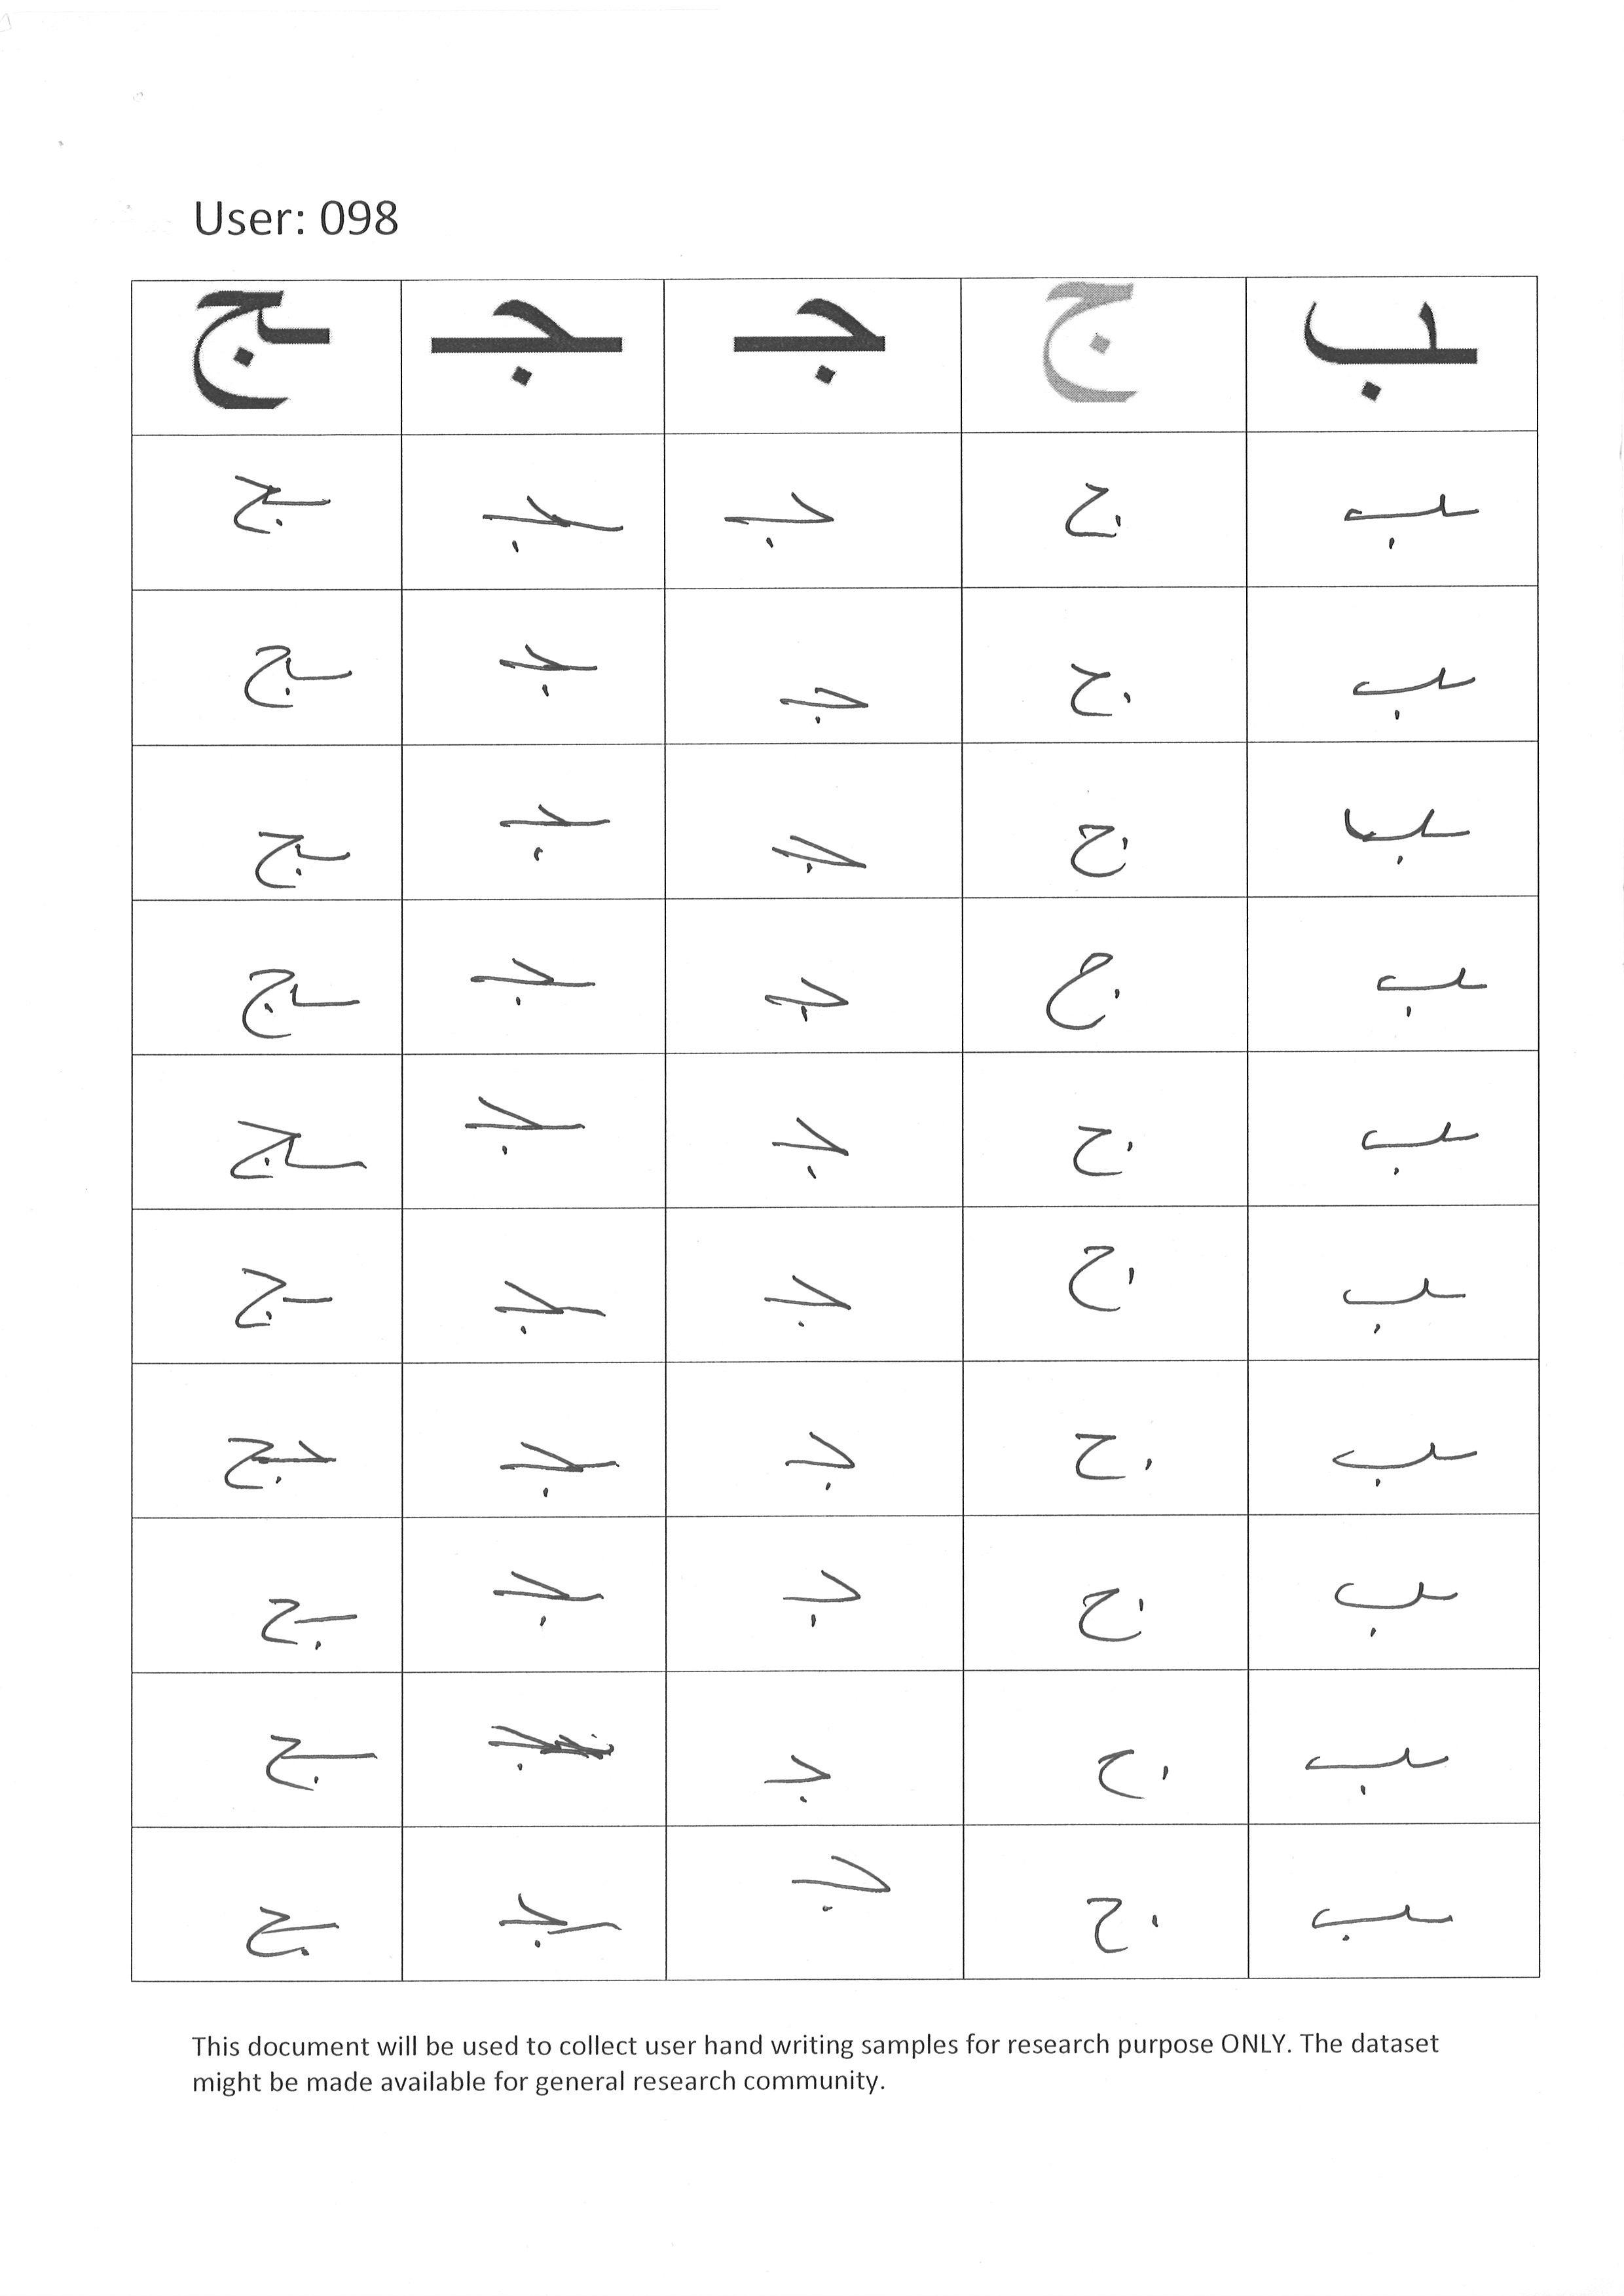 User: 098
ـب ج جـ ـجـ ـج
ـب ج جـ ـجـ ـج
ـب ج جـ ـجـ ـج
ـب ج جـ ـجـ ـج
ـب ج جـ ـجـ ـج
ـب ج جـ ـجـ ـج
ـب ج جـ ـجـ ـج
ـب ج جـ ـجـ ـج
ـب ج جـ ـجـ ـج
ـب ج جـ ـجـ ـج
ـب ج جـ ـجـ ـج
This document will be used to collect user hand writing samples for research purpose ONLY. The dataset
might be made available for general research community.